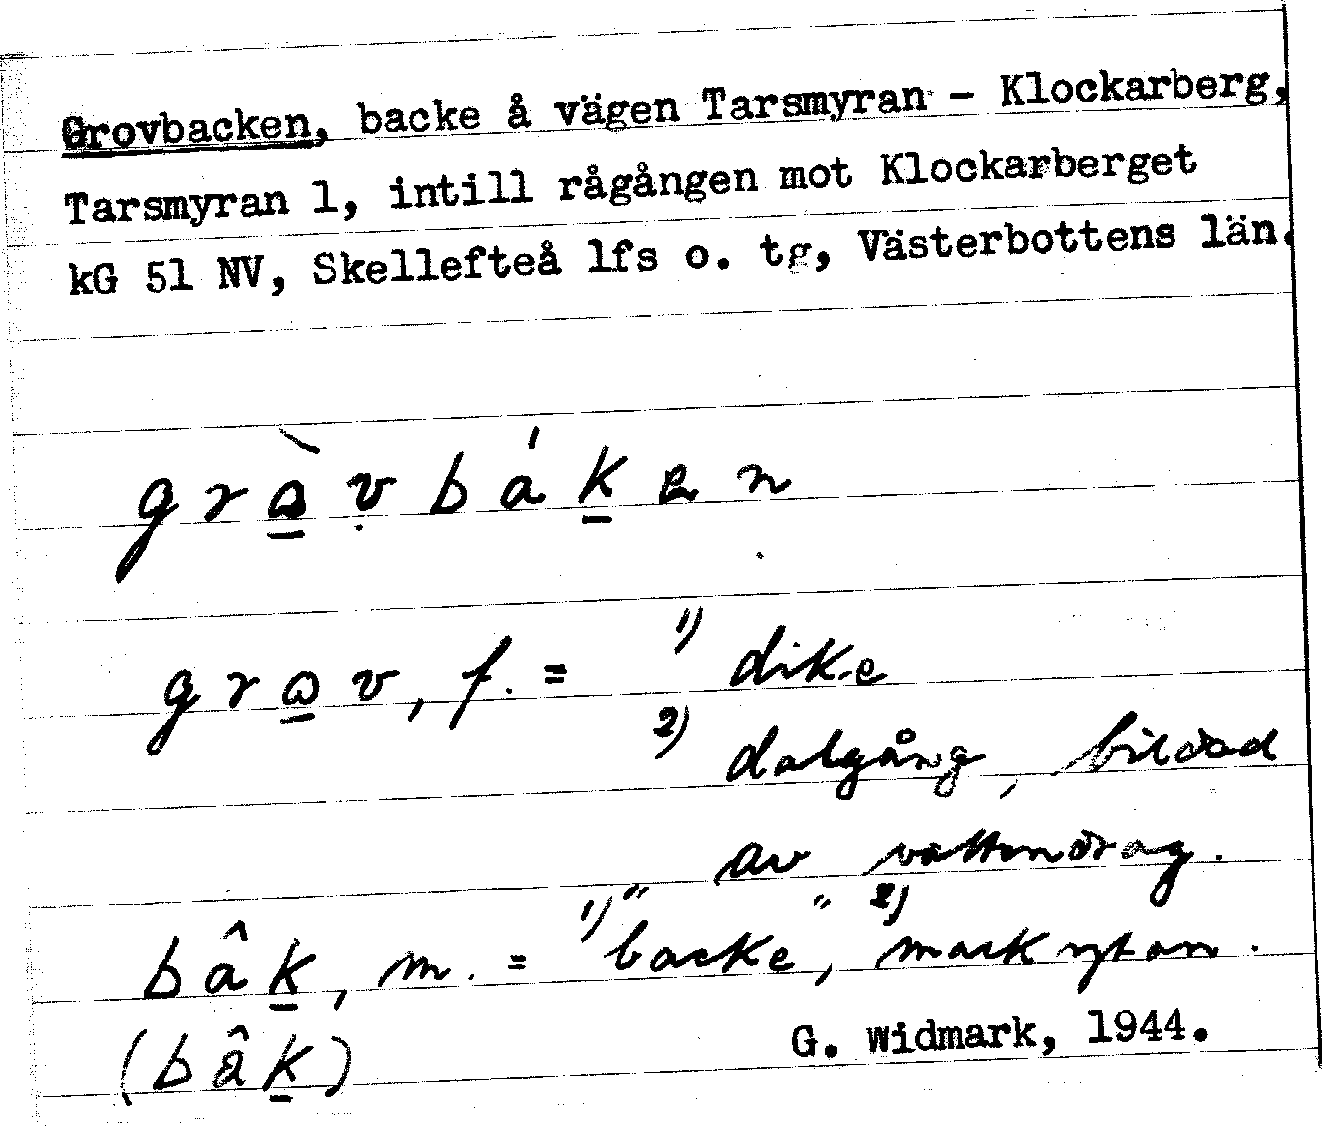 Grovbacken, backe å vägen Tarsmyran - Klockarberg,
Tarsmyran 1, intill rågången mot Klockarberget
kG 51 NV, Skellefteå lfs o. tg, Västerbottens län.
gràvbáken
grav, f. = 1) dike
2) dalgång, bildad
av vattendrag.
bâk, m. = 1) "backe", 2) markytan.
(bâk)
G. Widmark, 1944.